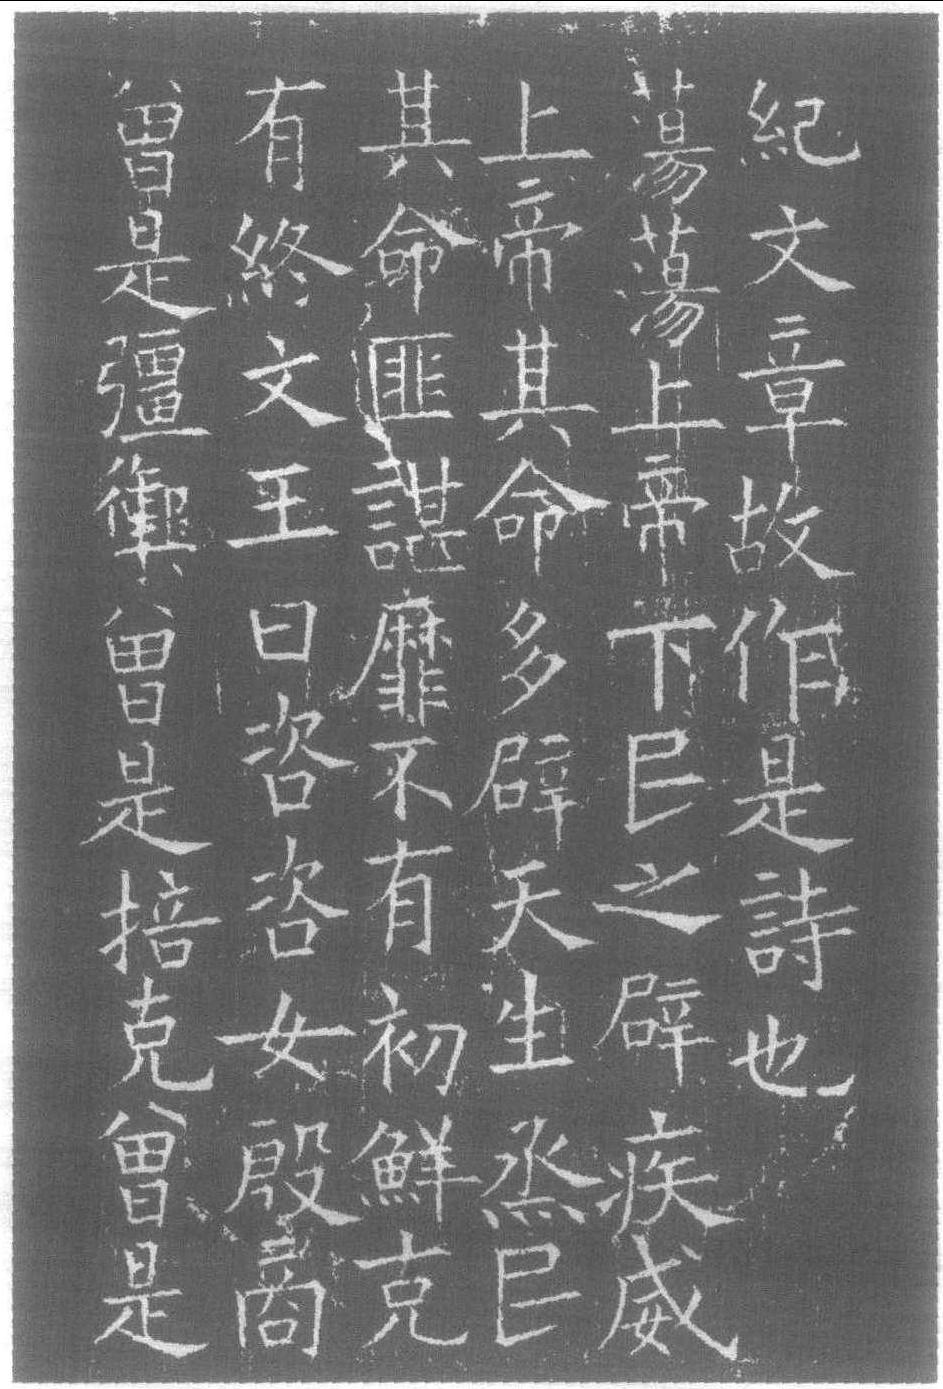 紀文章故作是詩也
蕩蕩上帝下民之辟疾威
上帝其命多辟天生烝民
其命匪諶靡不有初鮮克
有終文王曰咨咨女殷商
曾是彊禦曾是掊克曾是